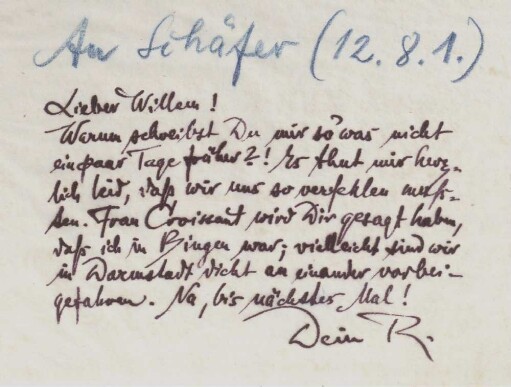 An Schäfer (12. 8. 1.)
Lieber Willem!
Warum schreibst Du mir so was nicht
ein paar Tage früher?! Es thut mir herz-
lich leid, daß wir uns so verfehlen muß-
ten. Frau Croissant wird Dir gesagt haben,
daß ich in Bingen war; vielleicht sind wir
in Darmstadt dicht an einander vorbei-
gefahren. Na, bis nächstes Mal!
Dein R.